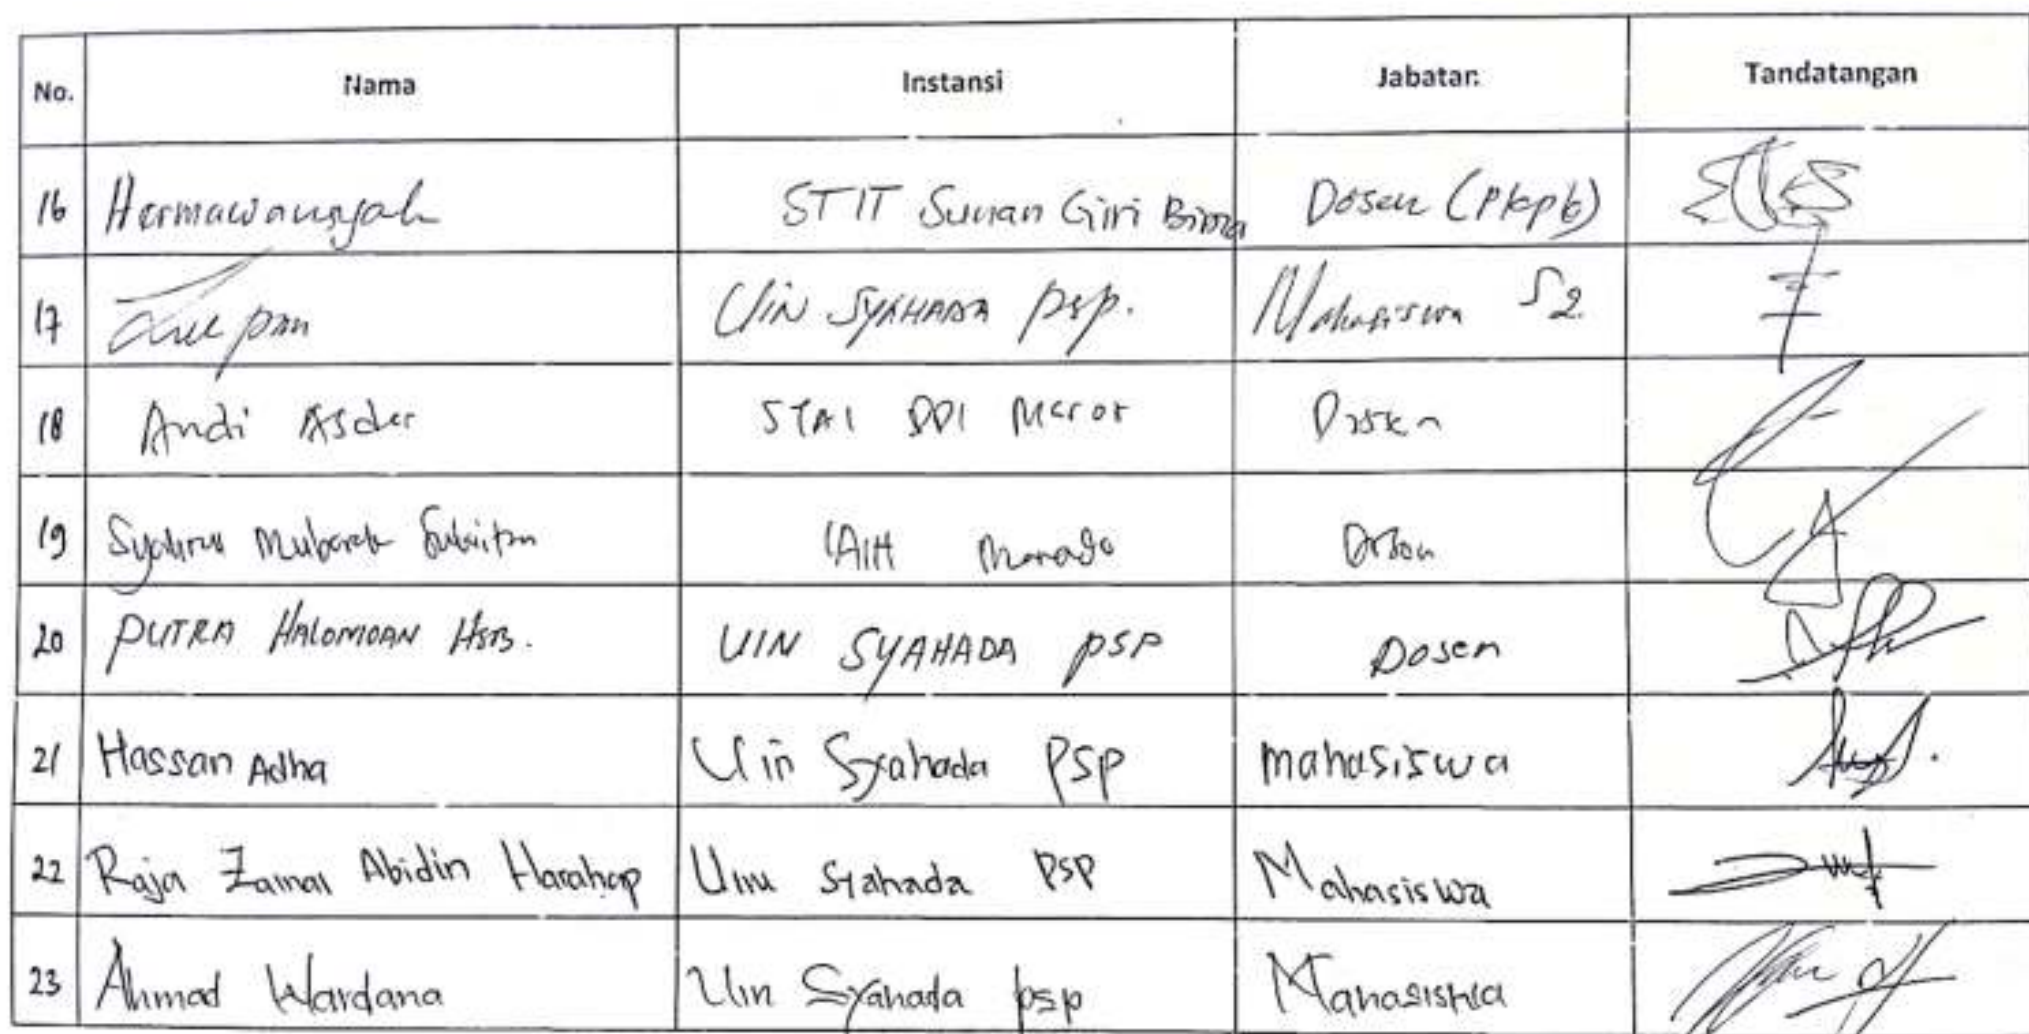 No. Nama Instansi Jabatan Tandatangan
16 Hermawansyah STIT Sunan Giri Bima Dosen (Pkpb)
17 UIN SYAHADA psp. Mahasiswa S2
18 Andi Asdar STAI DDI Maros Dosen
19 Syahrul Mubarak IAIN Manado Dosen
20 PUTRA HALOMOAN HSB. UIN SYAHADA PSP Dosen
21 Hassan Adha Uin Syahada PSP mahasiswa
22 Raja Zainal Abidin Harahap Uin Syahada PSP Mahasiswa
23 Ahmad Wardana Uin Syahada psp Mahasiswa